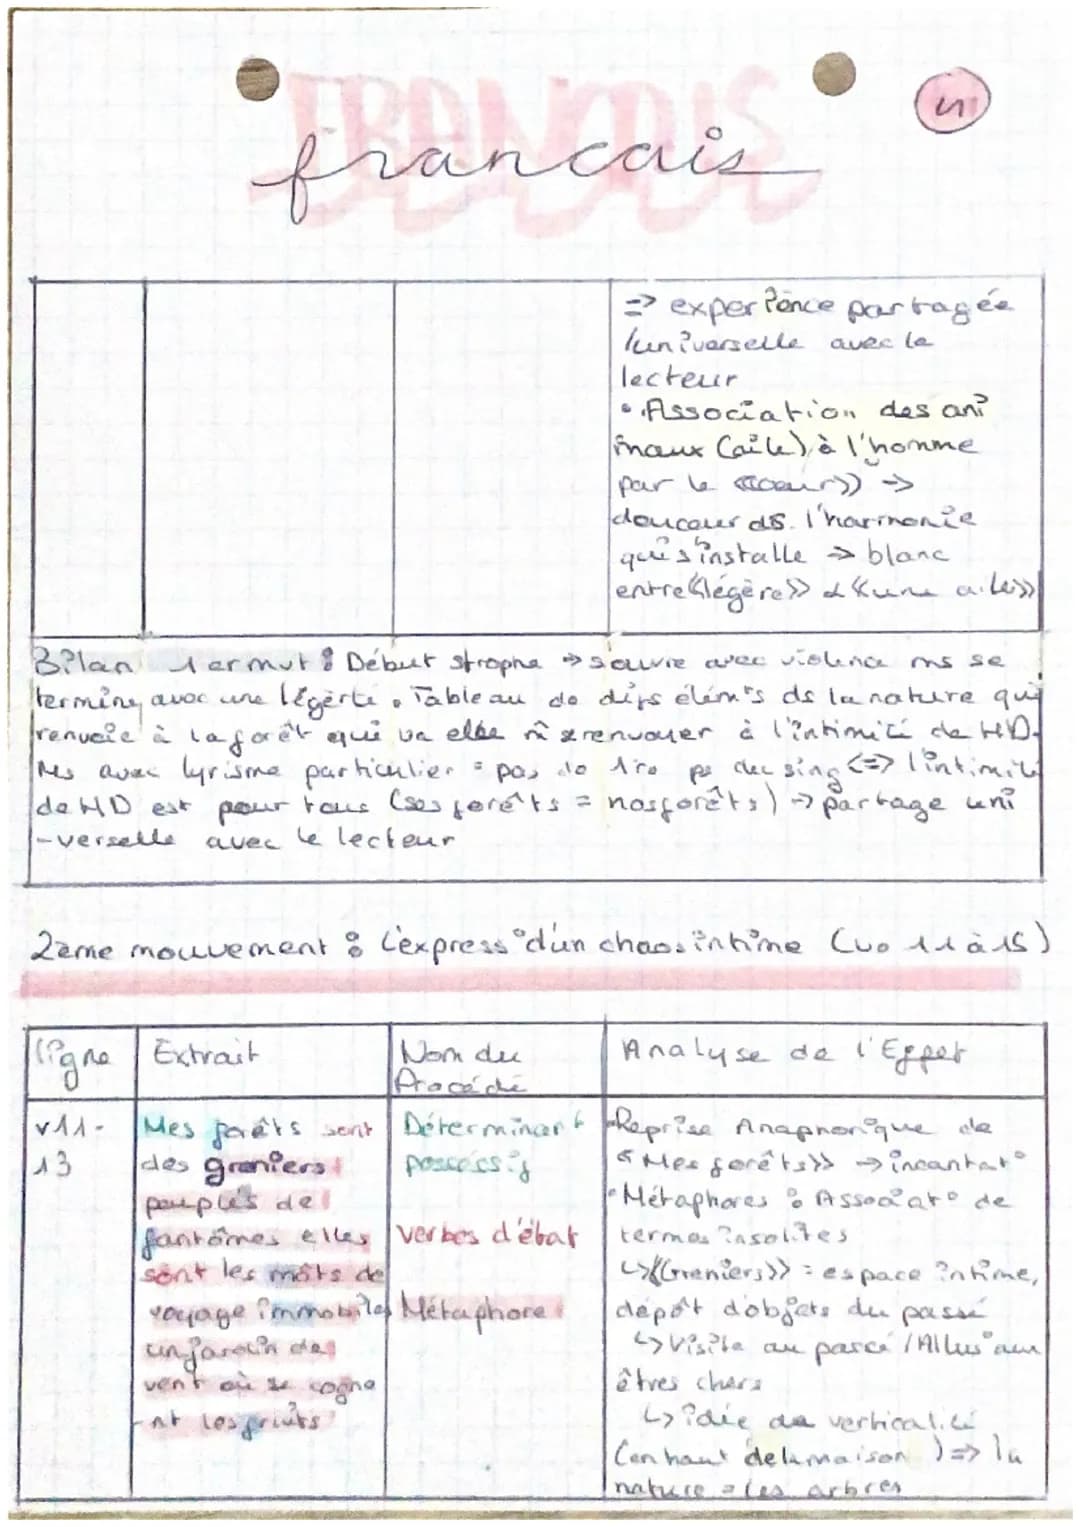 FRANCAIS
francais
=> experience partagée
/universelle avec le
lecteur
• Association des ani
maux (aile) à l'homme
par le «coeur» ->
douceur ds. l'harmonie
qui s'installe -> blanc
entre «légère» & «une aile»
Bilan 1er mvt : Début strophe -> s'ouvre avec violence ms se
termine avec une légèrté. Tableau de difs élém's ds la nature qui
renvoie à la forêt qui va elle renvoyer à l'intimité de HD.
Ms avec lyrisme particulier = pas de 1re ps du sing <=> l'intimité
de HD est pour tous (ses forêts = nos forêts) -> partage uni
-verselle avec le lecteur
2ème mouvement : L'express° d'un chaos intime (v. 11 à 15)
ligne
Extrait
Nom du
Procédé
Analyse de l'Effet
v11-
13
Mes forêts sont
des greniers
peuplés de
fantômes elles
sont les mâts de
voyage immobiles
un jardin de
vent où se cogne
nt les fruits
Déterminant
possessif
Verbes d'état
Métaphore
Reprise Anaphorique de
«Mes forêts» -> incantat°
• Métaphores : Associat° de
termes insolites
↳ «Greniers» = espace intime,
dépôt d'objets du passé
↳ Visite au passé / Allus° aux
êtres chers
↳ idée de verticalité
(en haut de la maison) => la
nature = les arbres